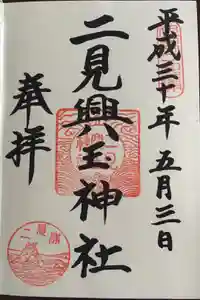 平成三十年 五月三日
二見興玉神社
奉拝